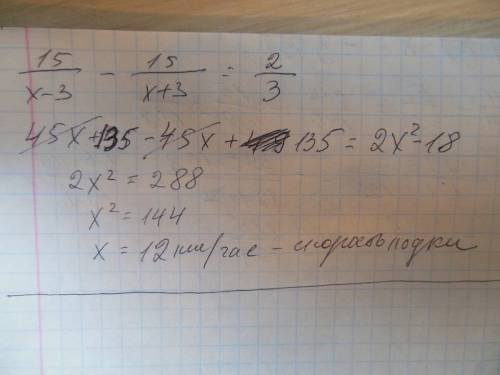 15/(x-3) - 15/(x+3) = 2/3
45x+135 - 45x + 135 = 2x²-18
2x² = 288
x² = 144
x = 12 км/час - скорость лодки